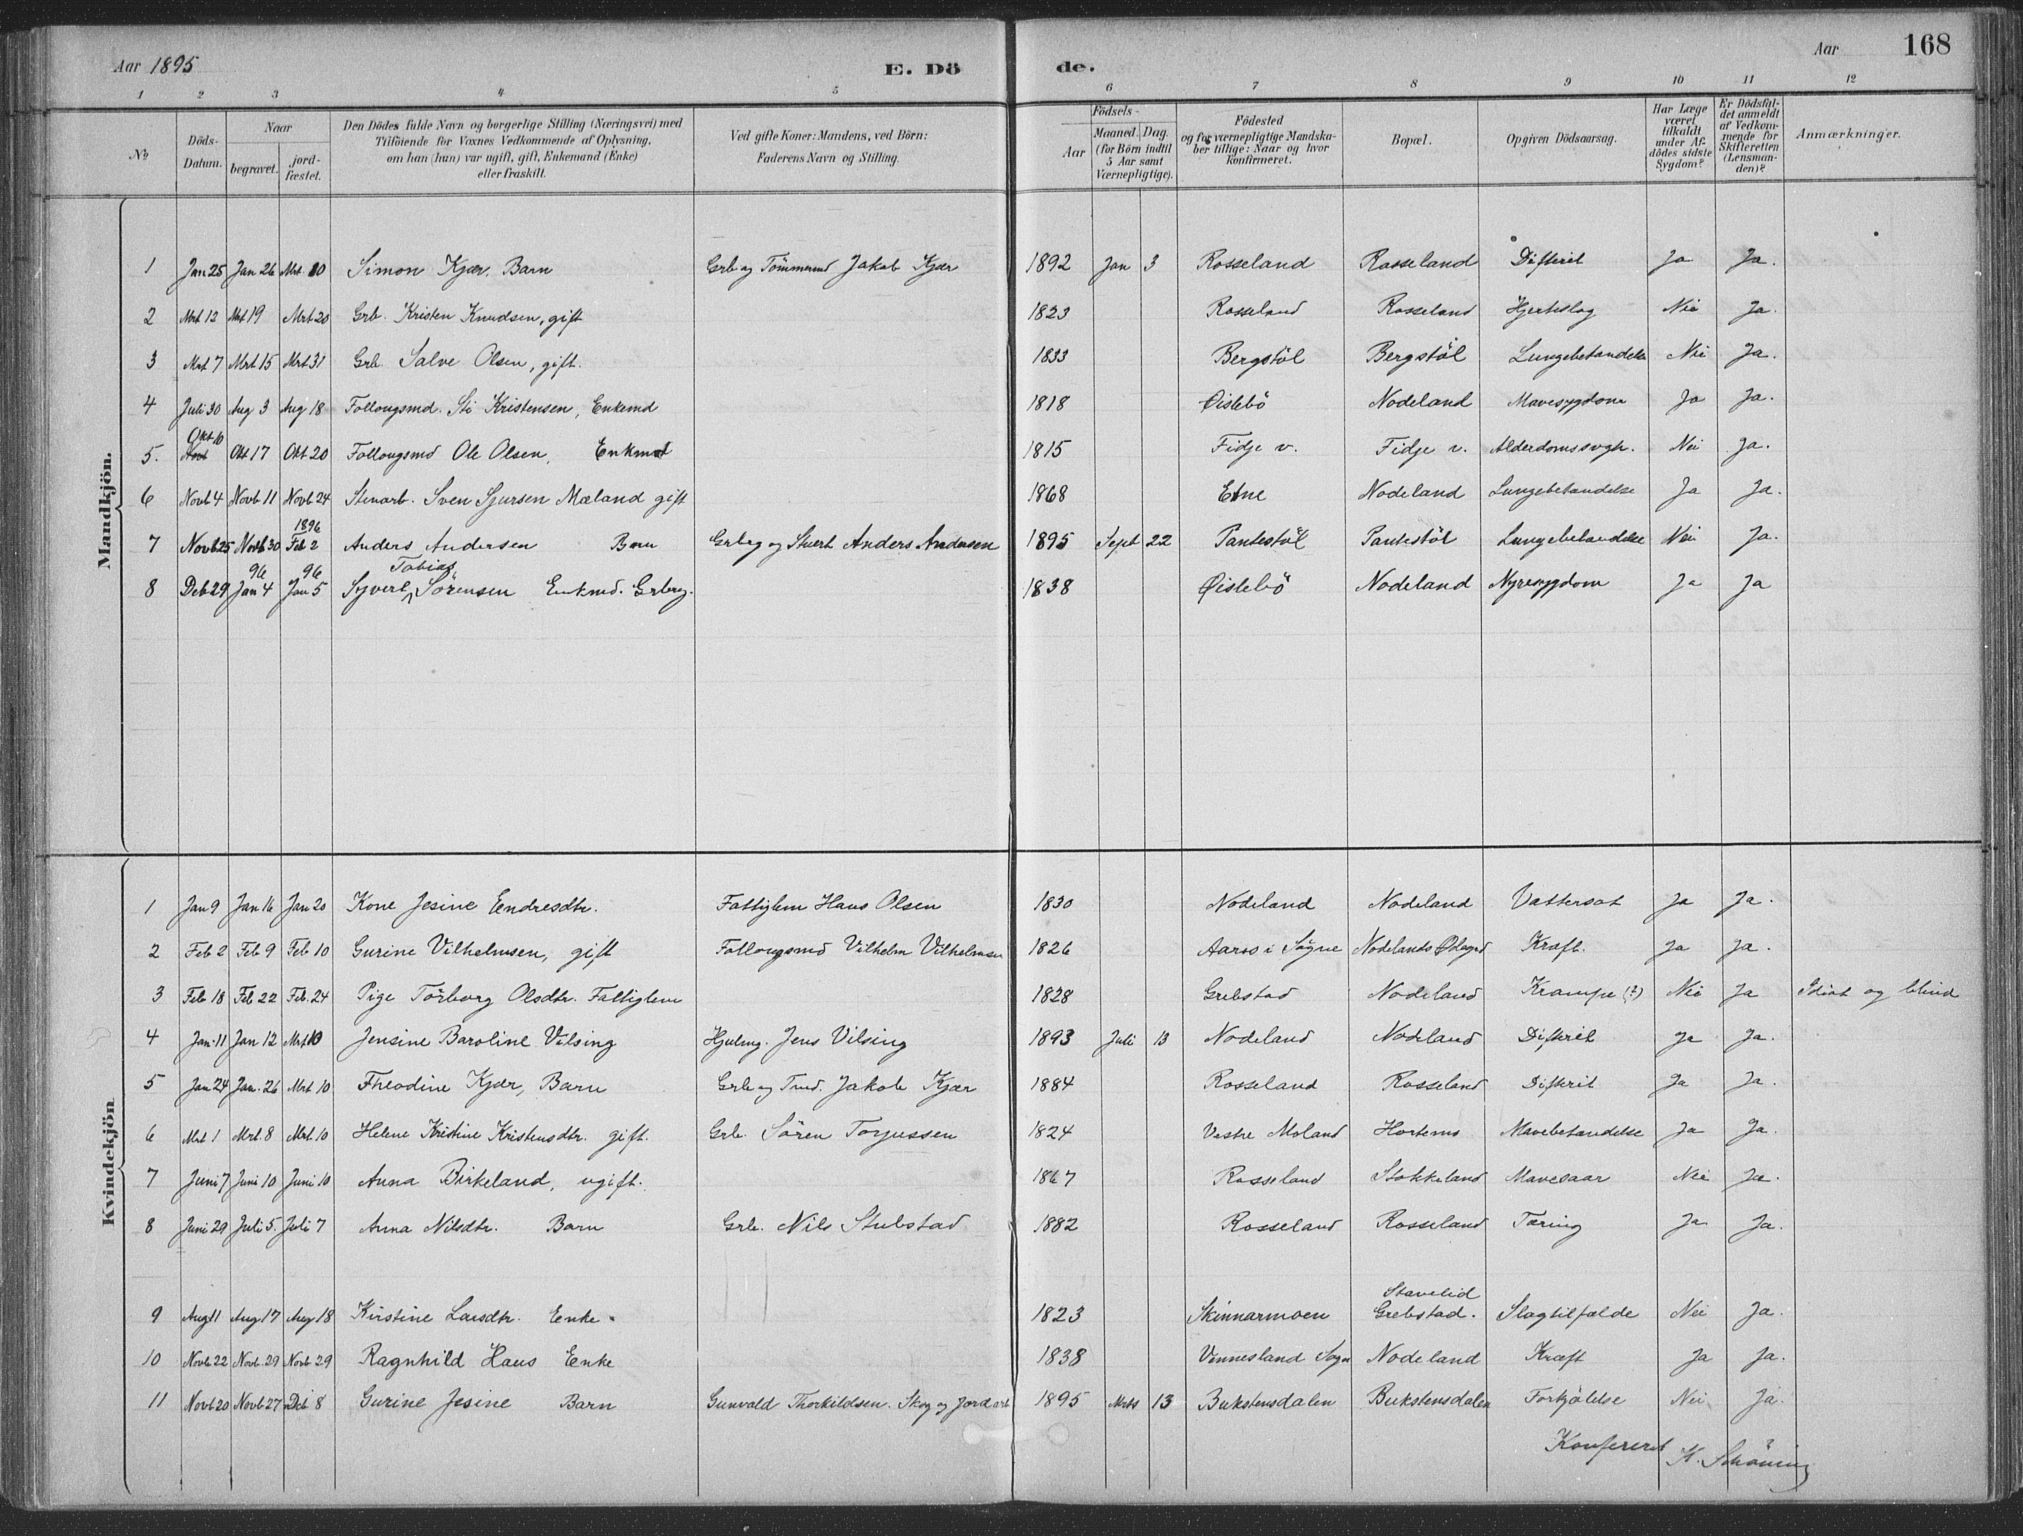 Aar 1895 E. Dö de. Aar 168
1 2 3 4 5 6 7 8 9 10 11 12
No Döds-Datum. Naar begravet. jord-fæstet. Den Dödes fulde Navn og borgerlige Stilling (Næringsvei) med Tilföiende for Voxnes Vedkommende af Oplysning, om han (hun) var ugift, gift, Enkemand (Enke) eller fraskilt. Ved gifte Koner: Mandens, ved Börn: Faderens Navn og Stilling. Födsels- Aar Maaned. Dag. (for Börn indtil 5 Aar samt Værnepligtige). Födested og for værnepligtige Mandskaber tillige: Naar og hvor konfirmeret. Bopæl. Opgiven Dödsaarsag. Har Læge været tilkaldt under Afdödes sidste Sygdom? Er Dödsfaldet anmeldt af Vedkommende for Skifteretten (Lensmanden)? Anmærkninger.
Mandkjön.
1 Jan 25 Jan 26 Mrt 10 Simon Kjær, Barn Grb og Tömmermd Jakob Kjær 1892 Jan 3 Rosseland Rosseland Difterit Ja Ja.
2 Mrt 12 Mrt 19 Mrt 20 Grb. Kristen Knudsen, gift 1823 Rosseland Rosseland Hjerteslag Nei Ja.
3 Mrt 7 Mrt 15 Mrt 31 Grb. Salve Olsen, gift. 1833 Bergstöl Bergstöl Lungebetændelse Nei Ja.
4 Juli 30 Aug 3 Aug 18 Follougsmd. Sti Kristensen, Enkemd 1818 Øislebö Nodeland Mavesygdom Ja Ja.
5. Okt 10 Okt 17 Okt 20 Follougsmd Ole Olsen, Enkmd 1815 Fidje v. Fidje v. Alderdomssvagh. Nei Ja.
6 Novb 4 Novb 11 Novb 24 Stenarb. Sven Sjursen Mæland gift 1868 Etne Nodeland Lungebetændelse Ja Ja.
7 Novb 25 Novb 30 1896 Feb 2 Anders Andersen Barn Grbrg og Stuert Anders Andersen 1895 Sept 22 Pantestöl Pantestöl Lungebetændelse Nei Ja.
8 Deb 29 96 Jan 4 96 Jan 5 Syvert Tobias Sörensen Enkmd. Grbrug. 1838 Øislebö Nodeland Nyresygdom Ja Ja
Kvindekjön
1 Jan 9 Jan 16 Jan 20 Kone Jesine Endresdtr. Fattiglem Hans Olsen 1830 Nodeland Nodeland Vattersot Ja Ja.
2 Feb 2 Feb 9 Feb 10 Gurine Vilhelmsen, gift Follougsmd Vilhelm Vilhelmsen 1826 Aaros i Sögne Nodelands Kræft. Ja Ja.
3 Feb 18 Feb 22 Feb. 24 Pige Törborg Olsdtr. Fattiglem 1828 Grebstad Nodeland Krampe (?) Nei Ja Idiot og blind
4 Jan. 11 Jan 12 Mrt 10 Jensine Baroline Vilsing Hjulmg. Jens Vilsing 1893 Juli 13 Nodeland Nodeland Difterit Ja Ja.
5 Jan 24 Jan. 26 Mrt 10 Theodine Kjær, Barn Grb og Tmd. Jakob Kjær 1884 Rosseland Rosseland Difterit Ja Ja.
6 Mrt 1 Mrt. 8 Mrt. 10 Helene Kristine Kristensdtr. gift. Grb. Sören Torjussen 1824 Vestre Moland Hortems Mavebetændelse Ja Ja.
7 Juni 7 Juni 10 Juni 10 Anna Birkeland, ugift. 1867 Rosseland Stokkeland Mavesaar Nei Ja.
8 Juni 29 Juli 5. Juli 7 Anna Nilsdtr. Barn Grb. Nils Stubstad 1882 Rosseland Rosseland Tæring Ja Ja.
9 Aug 11 Aug 17 Aug 18 Kirstine Larsdtr. Enke. 1823 Skinnarmoen Stavelid Grebstad. Slagtilfælde Nei Ja.
10 Novb 22 Novb. 29 Novb 29 Ragnhild Haus Enke 1838 Vennesland Sogn Nodeland Kræft Ja Ja.
11 Novb 20 Novb 27 Deb 8 Gurine Jesine Barn Gunvald Thorkildsen. Skog og Jordarb 1895 Mrts 13 Bukstensdalen Bukstensdalen Forkjölelse Nei Ja.
Konfereret K. Schöning